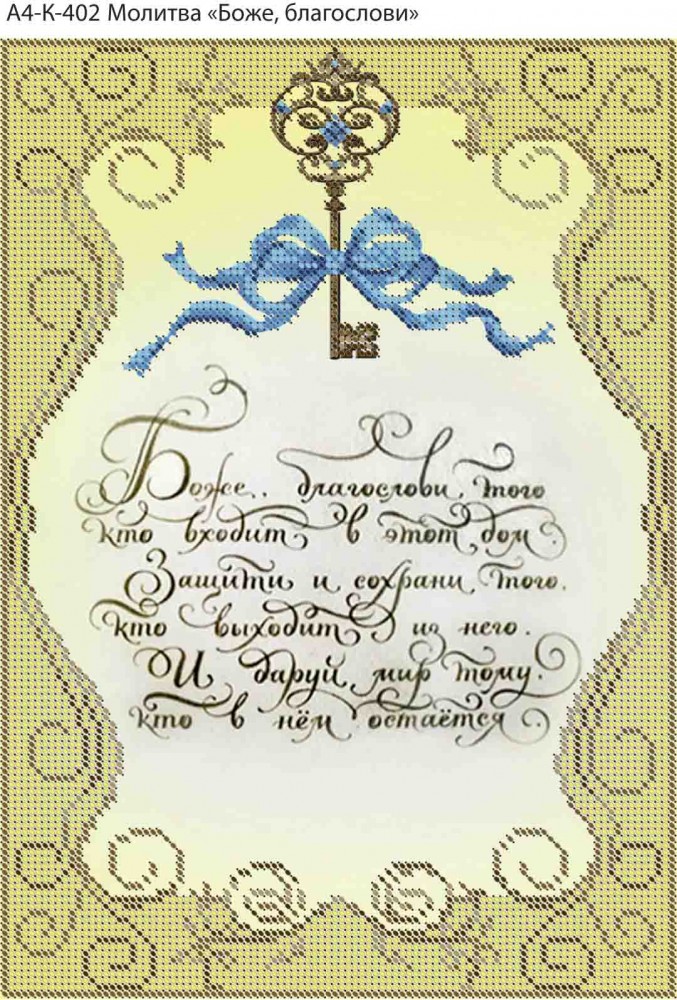 А4-К-402 Молитва «Боже, благослови»
Боже, благослови того
кто входит в этот дом.
Защити и сохрани того,
кто выходит из него.
И даруй мир тому,
кто в нём остаётся.